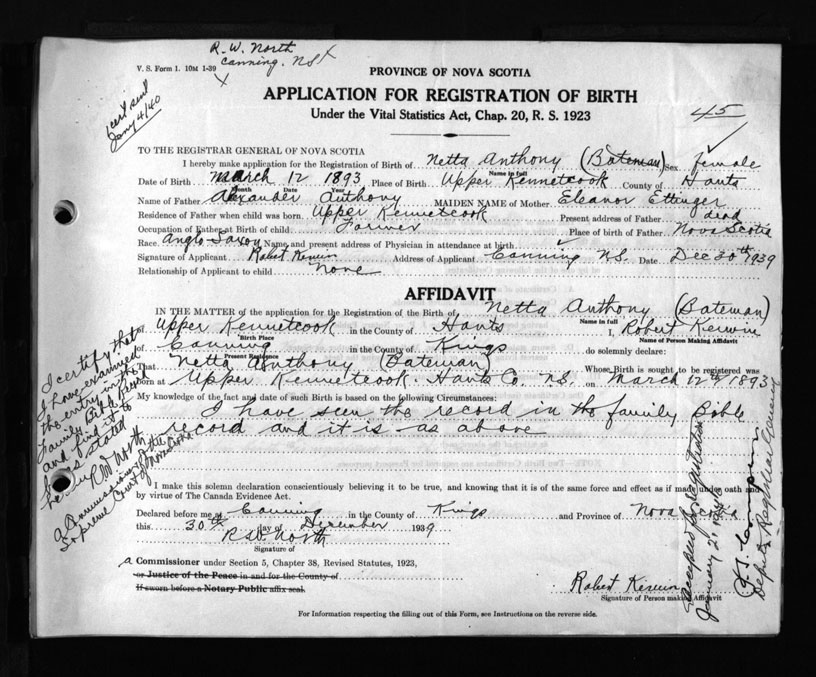 R. W. North
Canning. NS
V. S. Form 1. 10M 1-39
1 cert sent
Jany 4/40
45
PROVINCE OF NOVA SCOTIA
APPLICATION FOR REGISTRATION OF BIRTH
Under the Vital Statistics Act, Chap. 20, R. S. 1923
TO THE REGISTRAR GENERAL OF NOVA SCOTIA
I hereby make application for the Registration of Birth of Netta Anthony (Bateman) Sex female
Name in full
Date of Birth March 12 1893 Place of Birth Upper Kennetcook County of Hants
Month Date Year
Name of Father Alexander Anthony MAIDEN NAME of Mother Eleanor Ettinger
Residence of Father when child was born Upper Kennetcook Present address of Father dead
Occupation of Father at Birth of child Farmer Place of birth of Father Nova Scotia
Race Anglo Saxon Name and present address of Physician in attendance at birth
Signature of Applicant Robert Kerwin Address of Applicant Canning N.S. Date Dec 30th 1939
Relationship of Applicant to child None
AFFIDAVIT
IN THE MATTER of the application for the Registration of the Birth of Netta Anthony (Bateman)
Name in full
of Upper Kennetcook in the County of Hants I, Robert Kerwin
Birth Place Name of Person Making Affidavit
of Canning in the County of Kings do solemnly declare:
Present Residence
That Netta Anthony (Bateman) Whose Birth is sought to be registered was
born at Upper Kennetcook. Hants Co. N.S. on March 12th 1893
My knowledge of the fact and date of such Birth is based on the following Circumstances:
I have seen the record in the family Bible
record and it is as above
I make this solemn declaration conscientiously believing it to be true, and knowing that it is of the same force and effect as if made under oath and
by virtue of The Canada Evidence Act.
Declared before me at Canning in the County of Kings and Province of Nova Scotia
this 30th day of December 1939
R W North
Signature of
a Commissioner under Section 5, Chapter 38, Revised Statutes, 1923,
or Justice of the Peace in and for the County of
If sworn before a Notary Public affix seal.
Robert Kerwin
Signature of Person making Affidavit
For Information respecting the filling out of this Form, see Instructions on the reverse side.
I certify that
I have examined
the entry in the
Family Bible Record
and find it to
be as stated
herein R W North
A Commissioner of the
Supreme Court of Nova Scotia
Accepted for Registration
January 2 1940
Deputy Registrar General